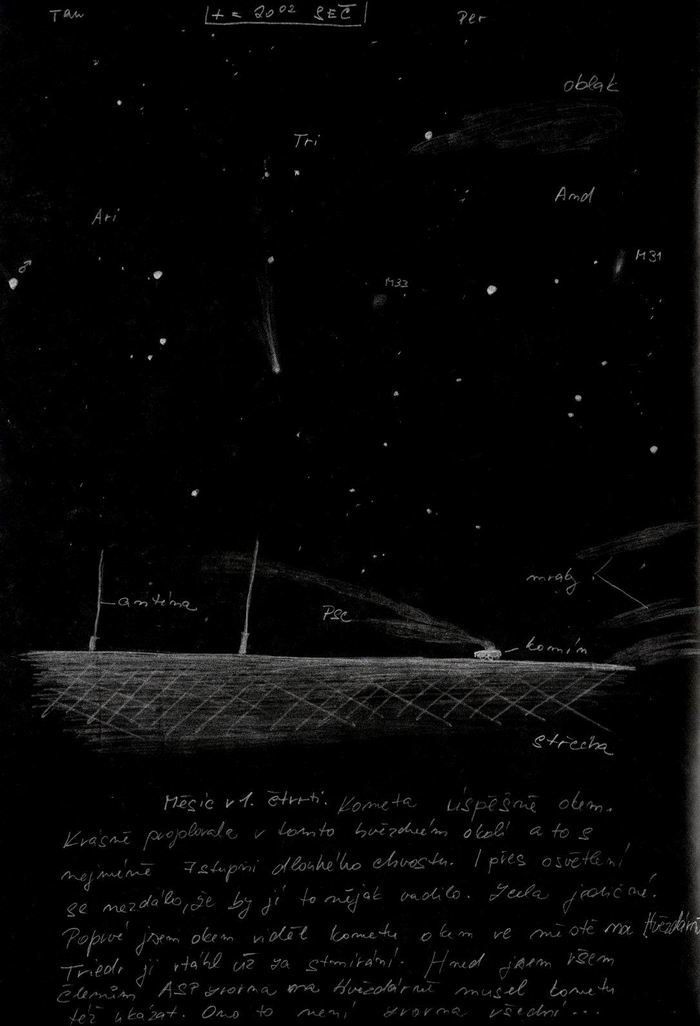 Tau
t = 20⁰² SEČ
Per
oblak
Tri
And
Ari
♂
M31
M33
mraky
antina
Psc
komín
střecha
Měsíc v 1. čtvrti. Kometa úspěšně okem.
Krásně proplovala v tomto hvězdném okolí a to s
nejméně 7 stupni dlouhého chvostu. I přes osvětlení
se nezdálo, že by jí to nějak vadilo. Zcela jedičné.
Poprvé jsem okem viděl kometu okem ve městě na Hvězdárně
Triedr ji vtáhl už za stmívání. Hned jsem všem
členům ASP zrovna na Hvězdárně musel kometu
též ukázat. Ono to není zrovna všední...